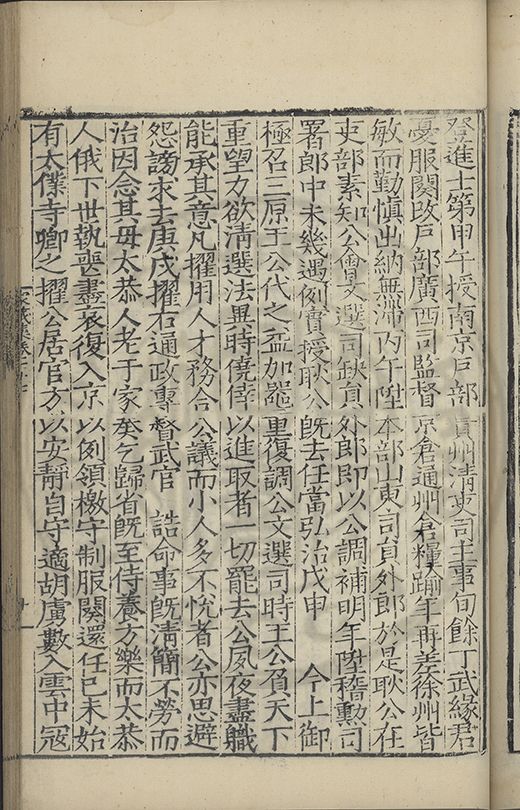 登進士第甲午授南京戶部貴州清吏司主事旬餘丁武緣君
憂服闋改戶部廣西司監督京倉通州倉糧踰年再差徐州皆
敏而勤慎出納無滯丙午陞本部山東司員外郎於是耿公在
吏部素知公會文選司缺員外郎即以公調補明年陞稽勳司
署郎中未幾遇例實授耿公既去任當弘治戊申 今上御
極召三原王公代之益加器重復調公文選司時王公負天下
重望方欲清選法異時僥倖以進取者一切罷去公夙夜盡職
能承其意凡擢用人才務合公議而小人多不悅者公亦思避
怨謗求去庚戌擢右通政專督武官 誥命事既清簡不勞而
治因念其母太恭人老于家癸乞歸省既至侍養方樂而太恭
人俄下世執喪盡哀復入京以例領檄守制服闋還任已未始
有太僕寺卿之擢公居官方以安靜自守適胡虜數入雲中冦